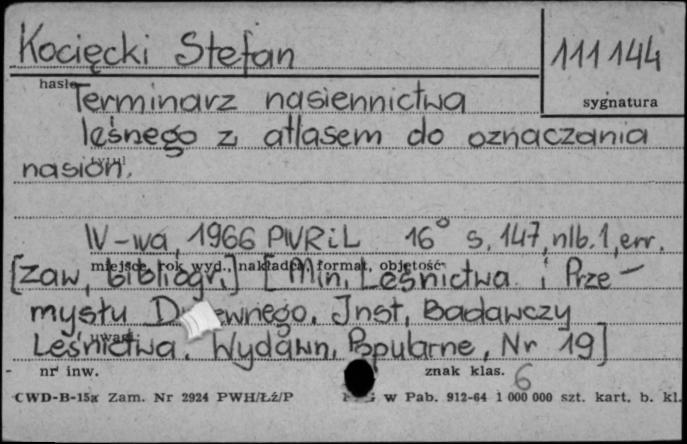 Kocięcki Stefan
111144
hasło
sygnatura
Terminarz nasiennictwa
leśnego z atlasem do oznaczania
nasion.
tytuł
W-wa, 1966 PWRiL 16° s. 147, nlb. 1, err.
miejsce, rok wyd., nakładca, format, objętość
[zaw. bibliogr.] [Min. Leśnictwa i Prze-
mysłu D ewnego. Inst. Badawczy
Leśnictwa. Wydawn. Popularne, Nr 19]
uwagi
nr inw.
znak klas. 6
CWD-B-15a Zam. Nr 2924 PWH/Łź/P
w Pab. 912-64 1 000 000 szt. kart. b. kl.